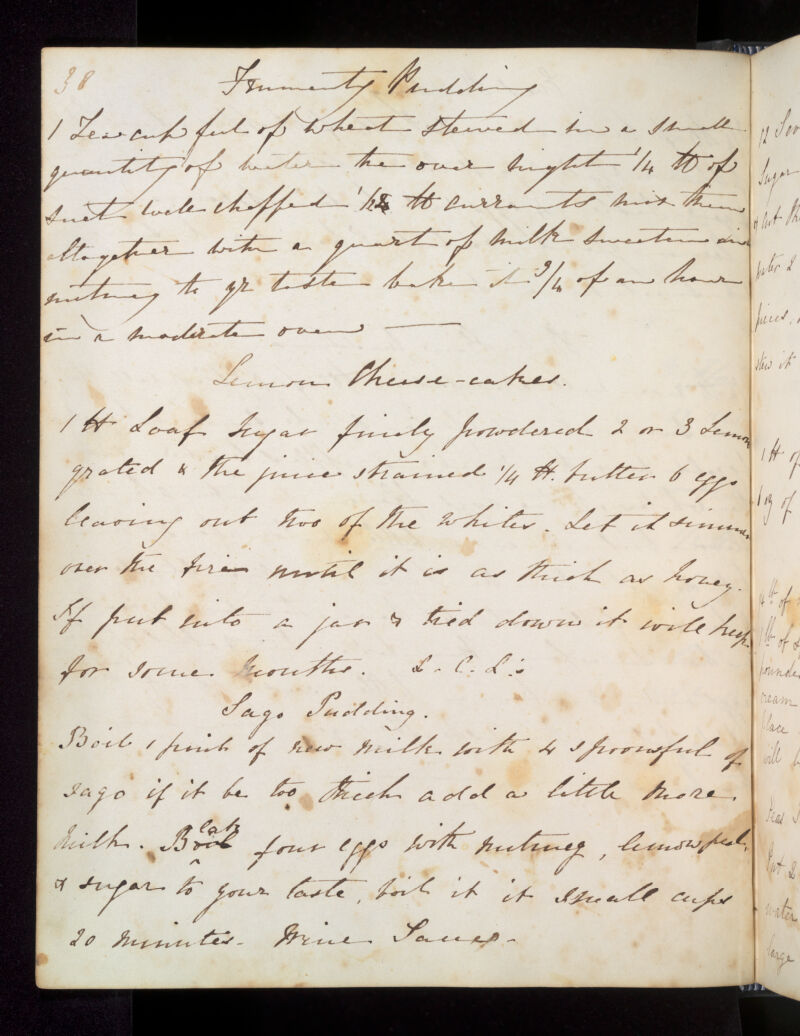 38
Frumenty Pudding
1 Teacup ful of wheat stewed in a small
quantity of water the over night 1/4 lb of
suet well chopped 1/2 lb currants mix them
altogether with a quart of milk sweeten and
nutmeg to yr taste bake it 3/4 of an hour
in a moderate oven —
Lemon Cheese-cakes.
1 lb Loaf sugar finely powdered 2 or 3 Lemon
grated & the juice strained 1/4 lb. butter 6 eggs
leaving out two of the whites. Let it simmer
over the fire until it is as thick as honey.
If put into a jar & tied down it will keep
for some months. L. C. L's
Sago Pudding.
Boil 1 pint of new milk with 4 spoonsful of
sago if it be too thick add a little more
milk. Beat four eggs with nutmeg, lemon peel,
& sugar to your taste, boil it it small cups
20 minutes. Wine Sauce.
Sugar
& cut the
water 2
pieces,
stew it
1 lb of
6 oz of
4 lb of
1 lb of
pounded
cream
place
will
Put 2
water
large